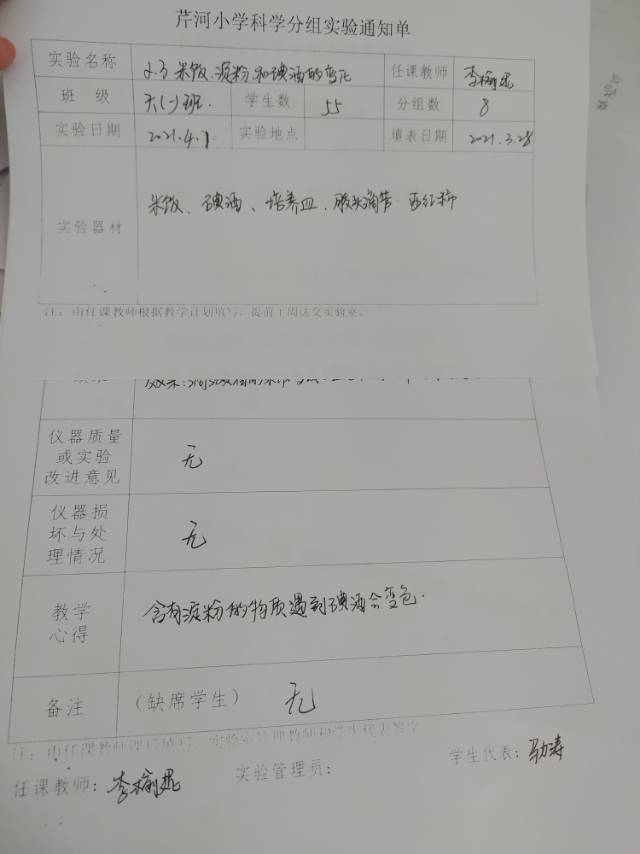 芹河小学科学分组实验通知单
实验名称 2.3 米饭、淀粉和碘酒的变化 任课教师
班 级 六(一)班. 学生数 55 分组数 8
实验日期 2021.4.1 实验地点 填表日期 2021.3.28
实验器材 米饭、碘酒、培养皿、胶头滴管 西红柿
注:由任课教师根据教学计划填写,提前1周送交实验室。
仪器质量
或实验
改进意见 无
仪器损
坏与处
理情况 无
教学
心得 含有淀粉的物质遇到碘酒会变色.
备注 (缺席学生) 无
任课教师: 实验管理员: 学生代表: